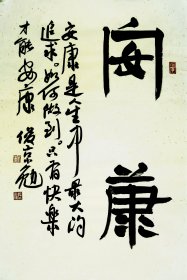 安康
安康是人生中最大的
追求。如何做到。只有快樂
才能安康